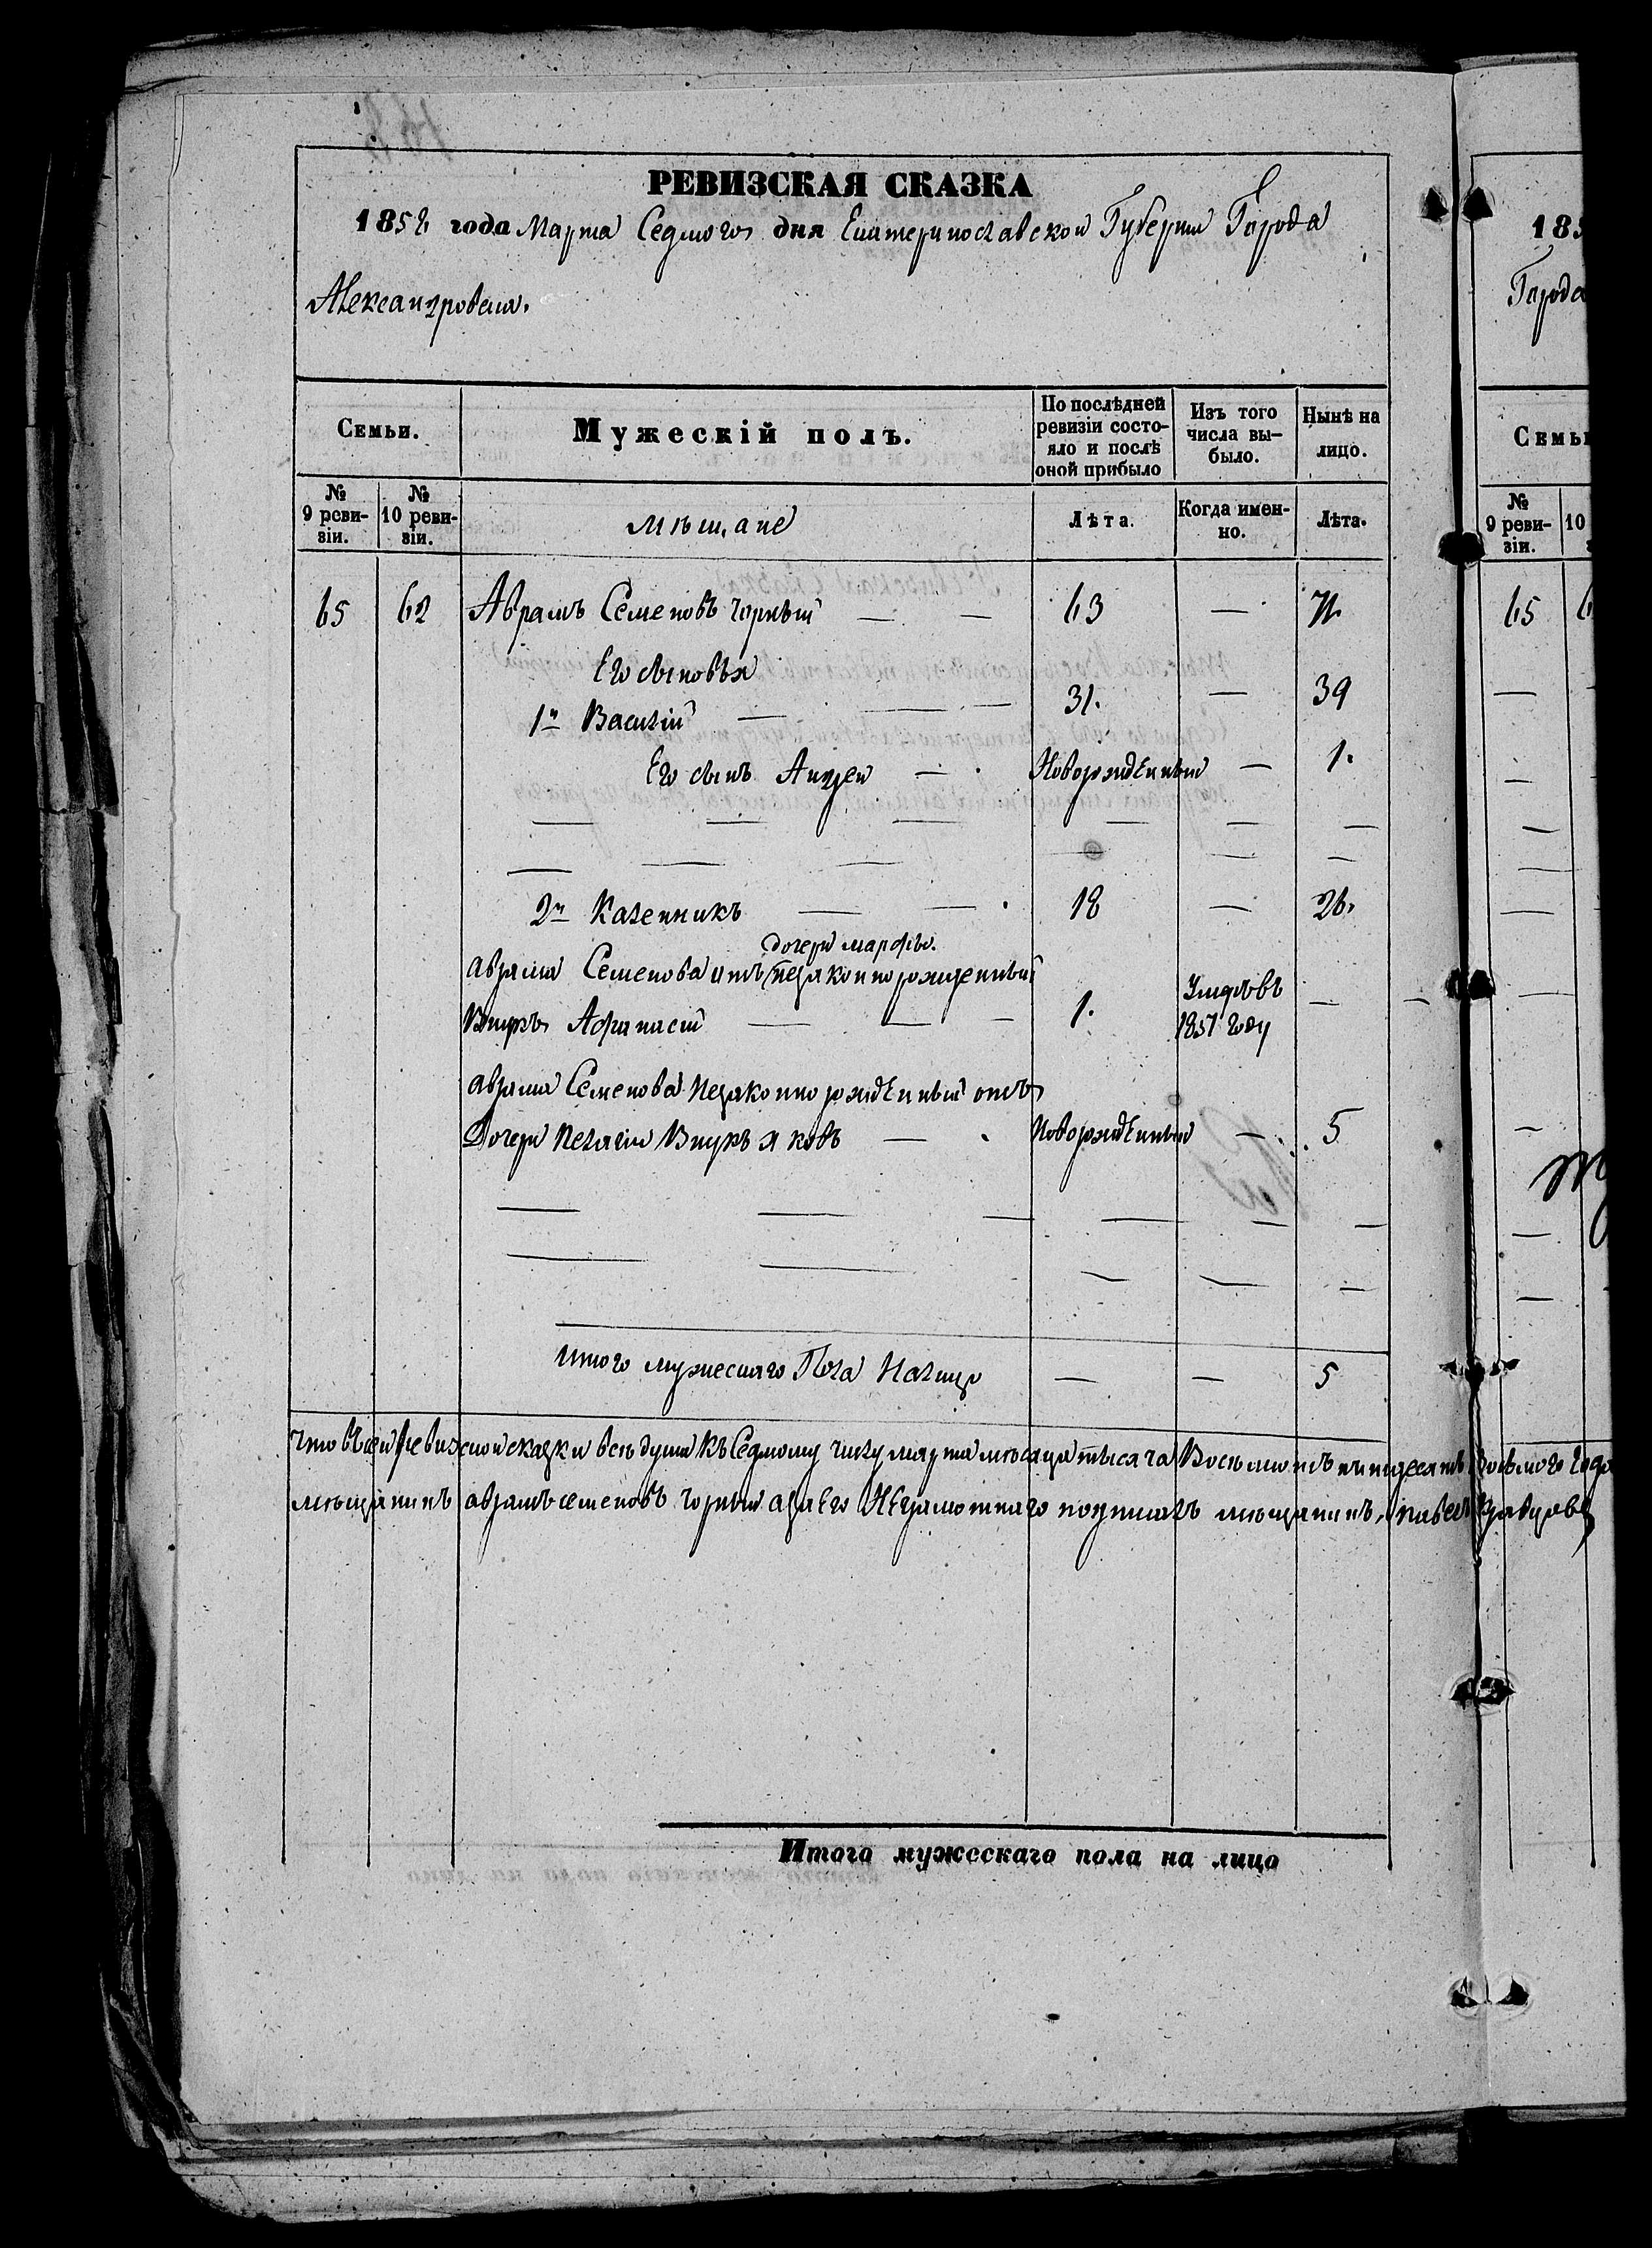 РЕВИЗСКАЯ СКАЗКА
1858 года Марта Седмого дня Екатеринославской Губернии Города
Александровска.
Семьи.
Мужескій полъ.
По послѣдней
ревизіи состо-
яло и послѣ
оной прибыло
Изъ того
числа вы-
было.
Нынѣ на
лицо.
№
9 реви-
зіи.
№
10 реви-
зіи.
мѣщане
Лѣта.
Когда имен-
но.
Лѣта.
65 62 Абрамъ Семеновъ Чорный — — 63 — 71
Его сыновья
1й Василій — — — 31. — 39
Его сынъ Андрей — Новорожденный — 1.
2й Каленникъ — — 18 — 26.
дочери марфы.
абрама Семенова отъ незаконнорожденный
Внукъ Афанасій — — — 1. Умеръ въ 1851 году — —
абрама Семенова незаконнорожденный отъ
Дочери Пелагіи Внукъ Яковъ — Новорожденный — 5
итого мужескаго Пола Налицо — — 5
что въ сей ревизской сказки всѣ души къ Седмому числу марта мѣсяца тысяча Восемьсотъ пятидесятъ Восьмого года
мѣщанинъ абрамъ семеновъ чорный а за Его Неграмотнаго подписалъ мѣщанинъ, павелъ
Итого мужескаго пола на лицо
185
Города
Семьи
№
9 реви-
зіи.
10
65